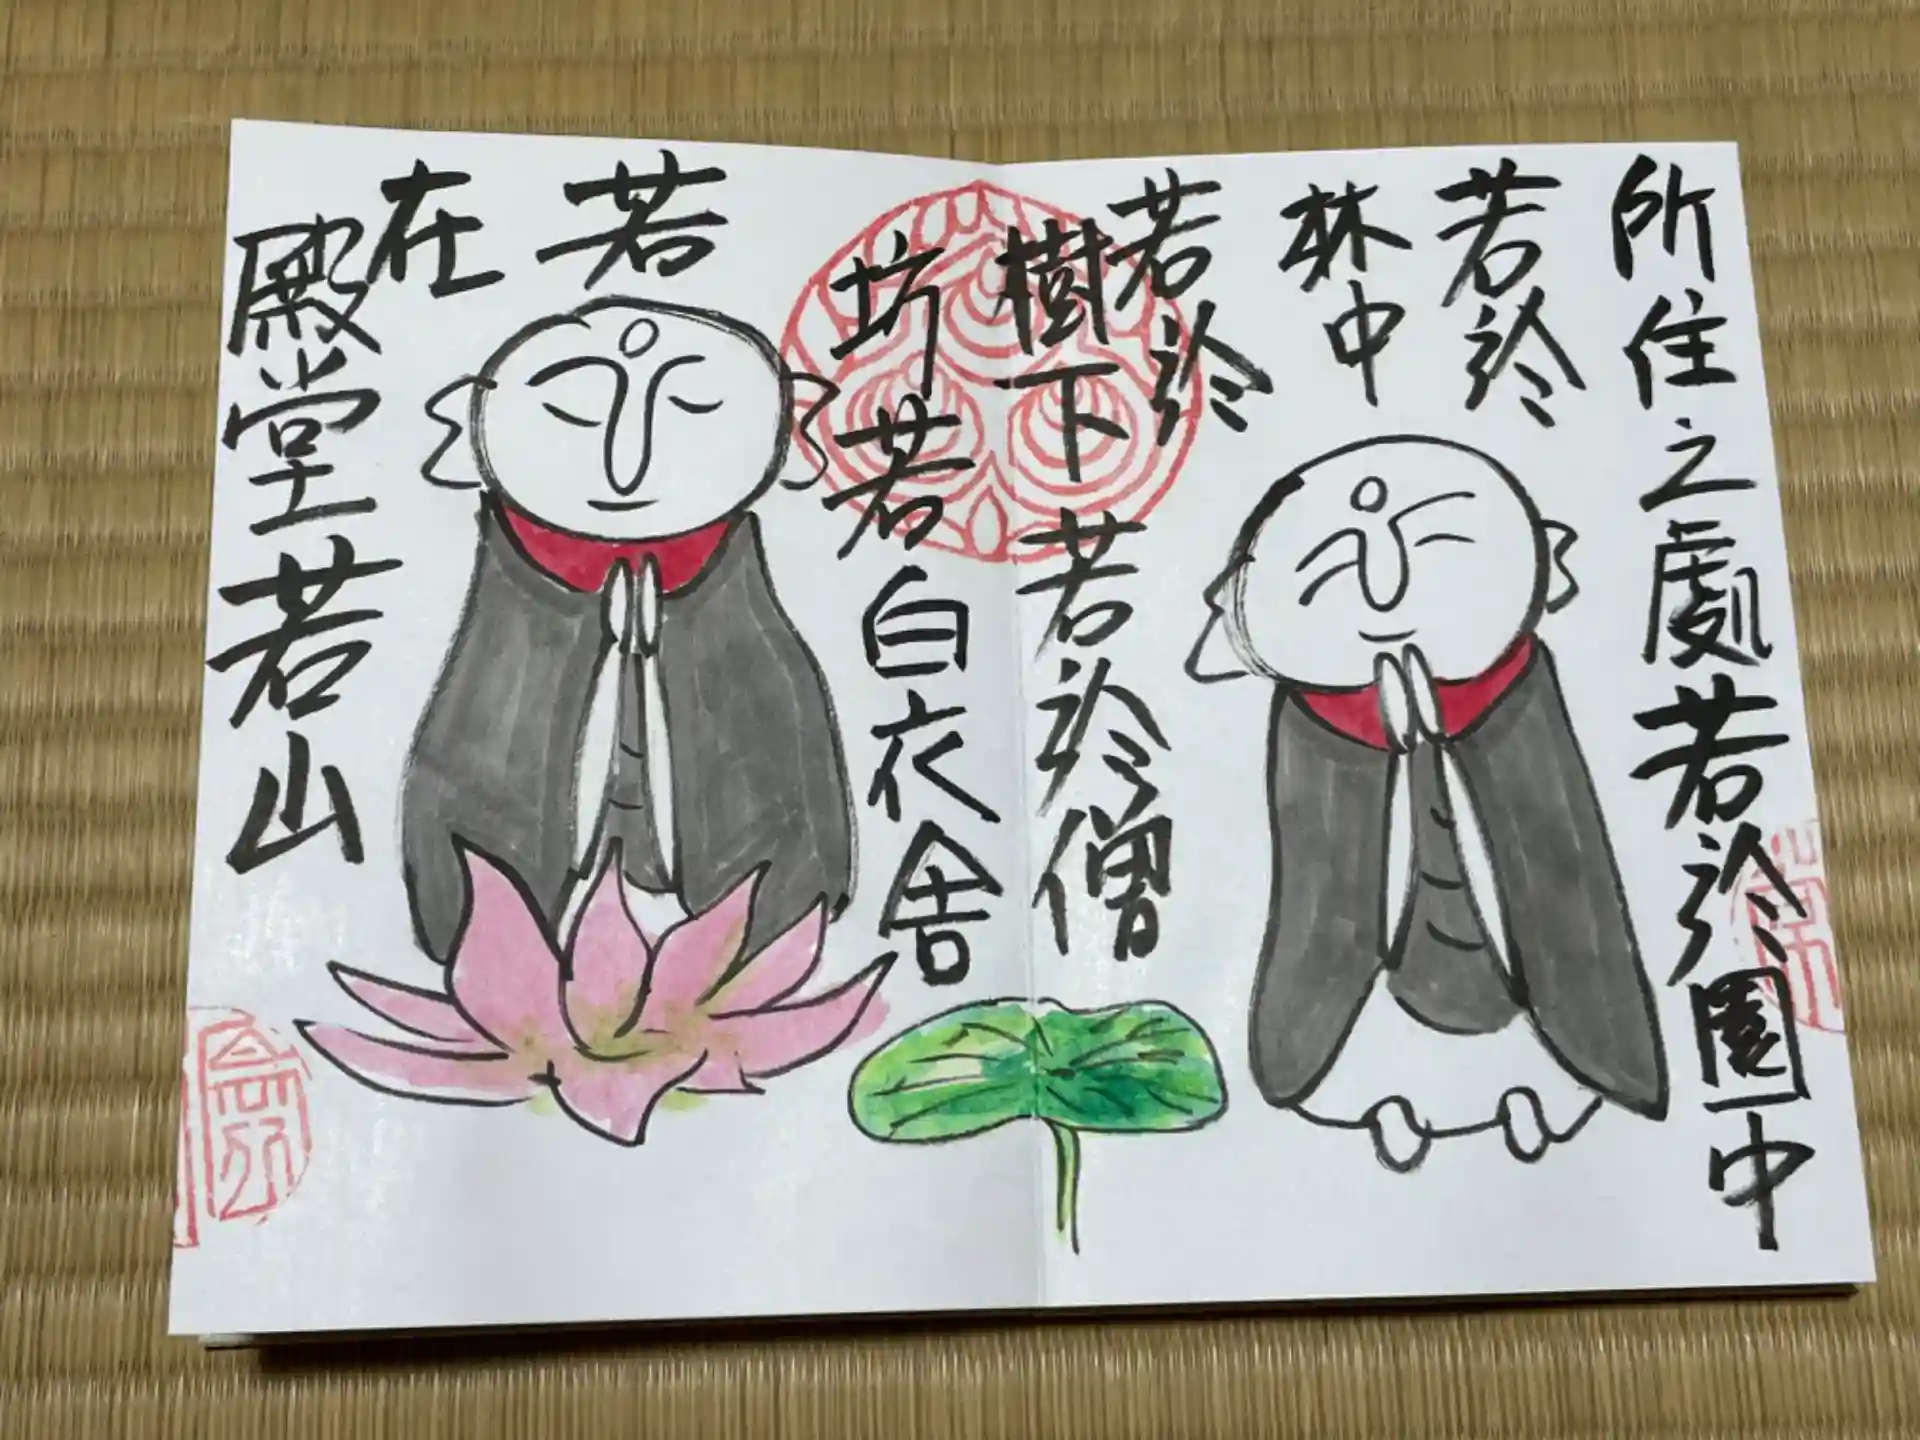 所住之處若於園中
若於
林中
若於
樹下若於僧
坊若白衣舍
若
在
殿堂若山